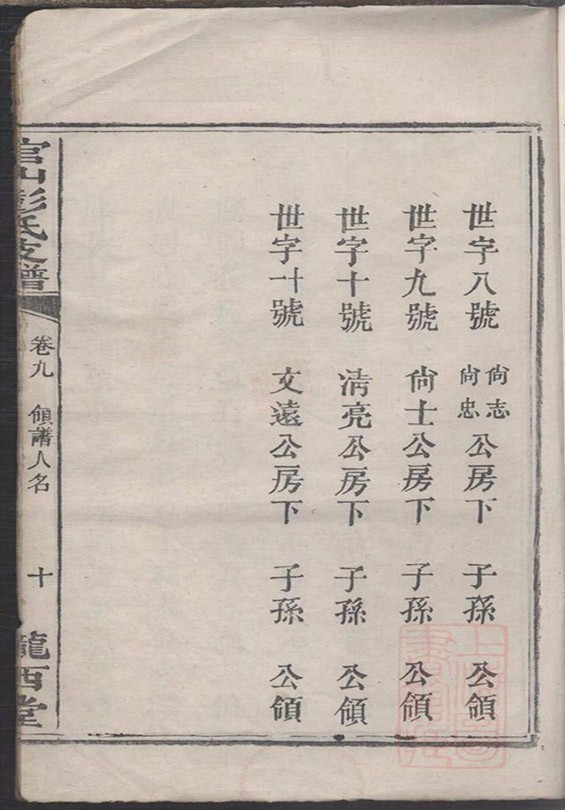 世字八號 尙志尙忠公房下 子孫 公領
世字九號 尙士公房下 子孫 公領
世字十號 淸亮公房下 子孫 公領
世字十一號 文遠公房下 子孫 公領
官山彭氏支譜
卷九 領譜人名
十
隴西堂